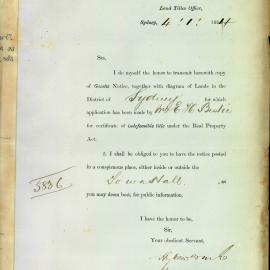 Land Titles Office,
Sydney, 4 . 1 . 1884
Sir,
I do myself the honor to transmit herewith copy
of Gazette Notice, together with diagram of Lands in the
District of Sydney for which
application has been made by E. H.
for certificate of indefeasible title under the Real Property
Act.
2. I shall be obliged to you to have the notice posted
in a conspicuous place, either inside or outside the
Town Hall, as
you may deem best, for public information.
5836
I have the honor to be,
Sir,
Your obedient Servant,